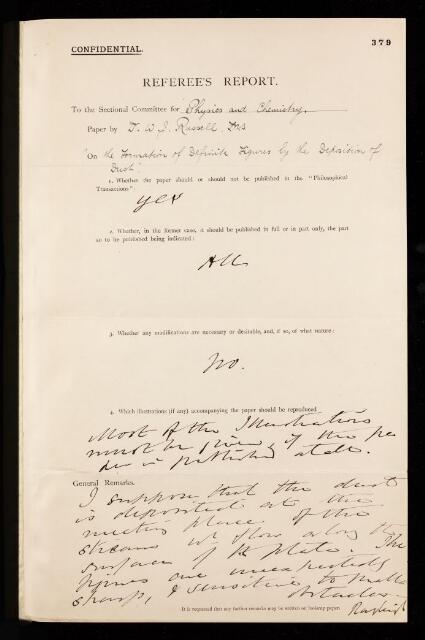 CONFIDENTIAL.
379
REFEREE'S REPORT.
To the Sectional Committee for Physics and Chemistry.
Paper by Dr. W. J. Russell, FRS
"On the Formation of Definite Figures by the Deposition of
Dust"
1. Whether the paper should or should not be published in the "Philosophical
Transactions"
yes
2. Whether, in the former case, it should be published in full or in part only, the part
so to be published being indicated:
All
3. Whether any modifications are necessary or desirable, and, if so, of what nature:
No.
4. Which illustrations (if any) accompanying the paper should be reproduced
Most of the Illustrations
must be given, if the pa
per is published at all.
General Remarks.
I suppose that the dust
is deposited at the
meeting place of the
streams wh flow along the
surface of the plate. The
figures are unexpectedly
sharp, & sensitive to small
obstacles.
It is requested that any further remarks may be written on foolscap paper.
Rayleigh